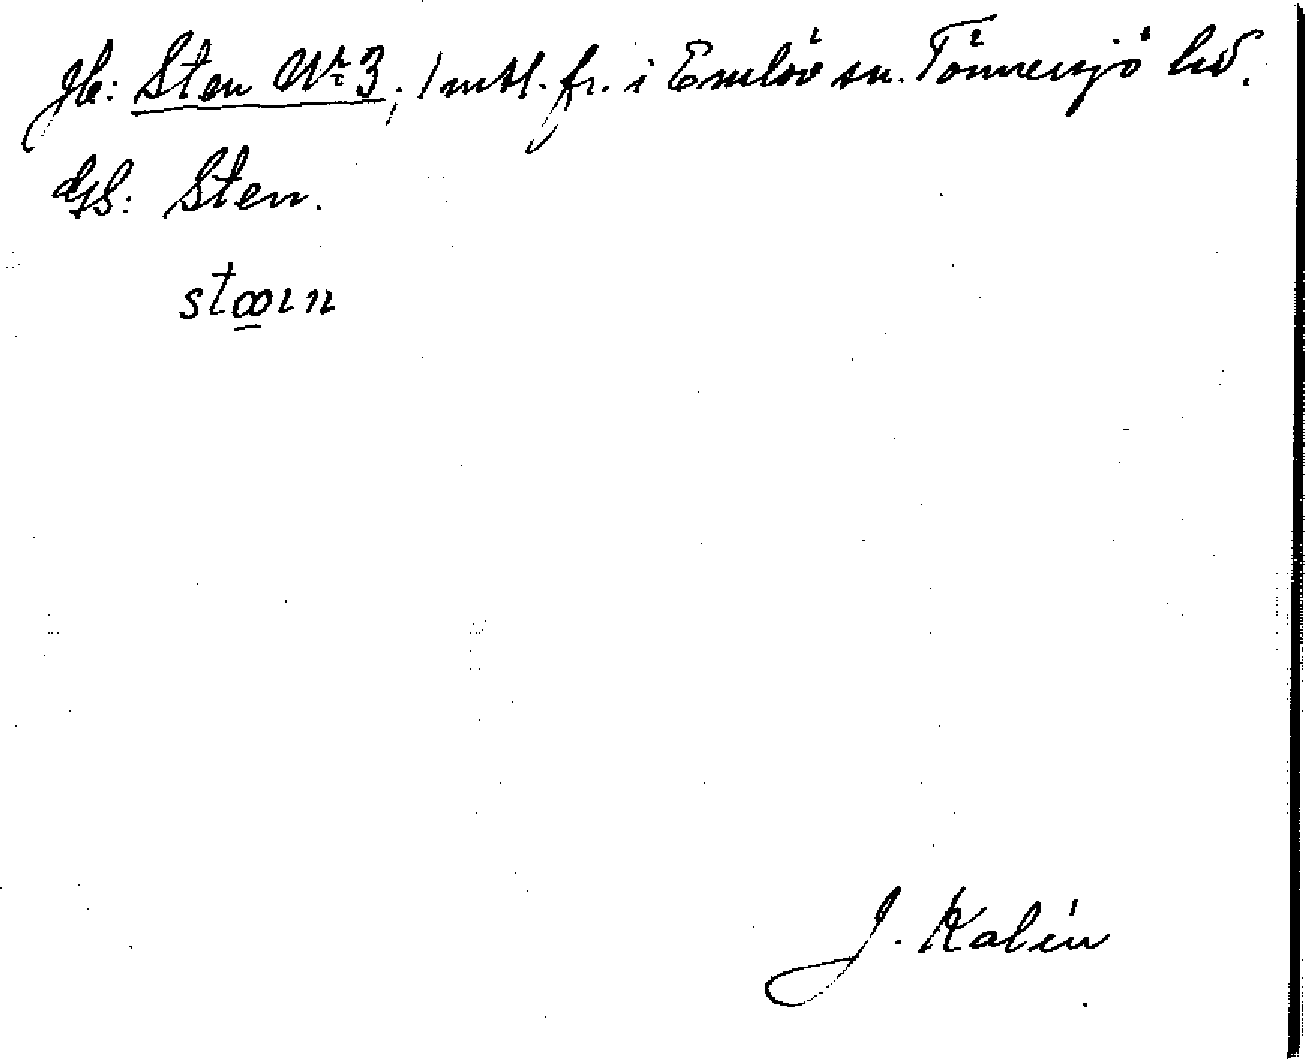 Jb: Sten Nr 3; 1 mtl. fr. i Enslöv sn. Tönnersjö hd.
GS: Sten.
J. Kalén